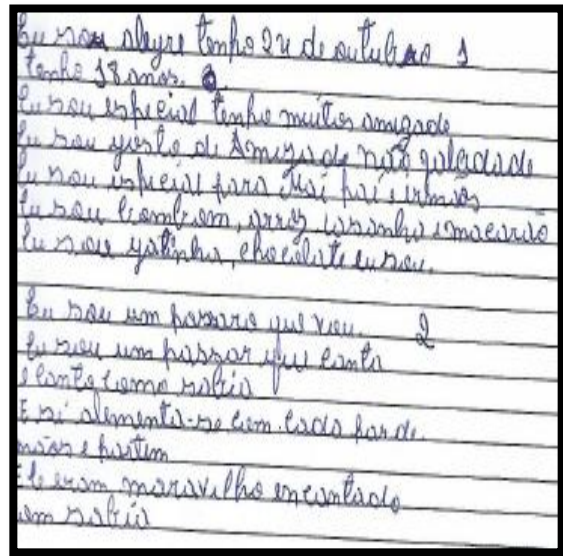 Eu sou alegre tenho 24 de outubro 1
tenho 18 anos.
Eu sou especial tenho muitos amizade
Eu sou gosto de Amizade não
Eu sou especial para Mai pai e irmãos
Eu sou bombom, arroz lasanha e macarão
Eu sou gatinha, chocolate eu sou.
Eu sou um passaro que vou. 2
Eu sou um passar que canta
e canto como sabia
E si alementa-se com cada par de
mãos e partem
Ele eram maravilho encantado
um sabia